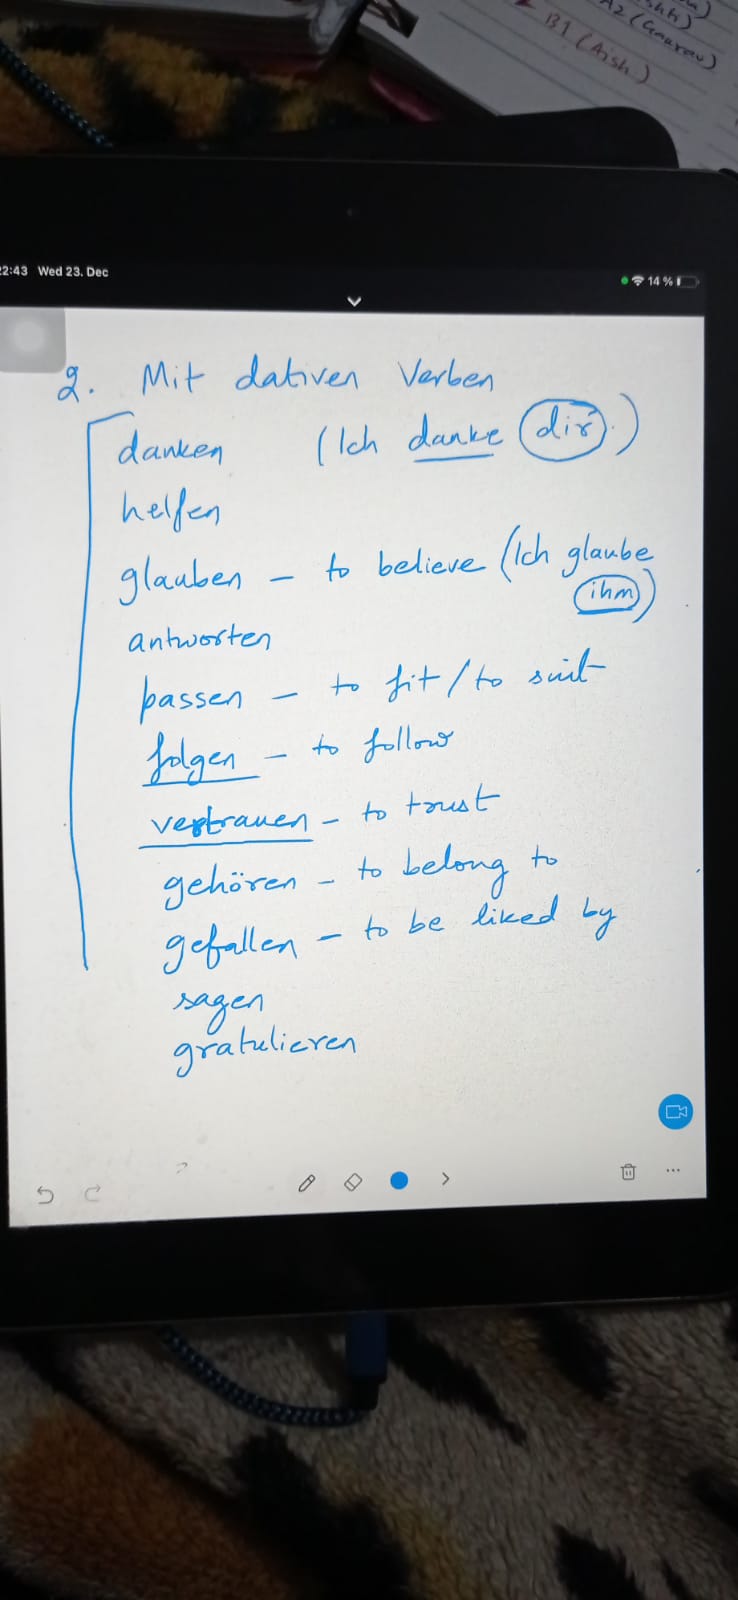 A2 (Gaurav)
B1 (Aish)
22:43 Wed 23. Dec
14 %
2. Mit dativen Verben
danken (Ich danke dir.)
helfen
glauben – to believe (Ich glaube
ihm)
antworten
passen – to fit/to suit
folgen – to follow
vertrauen – to trust
gehören – to belong to
gefallen – to be liked by
sagen
gratulieren